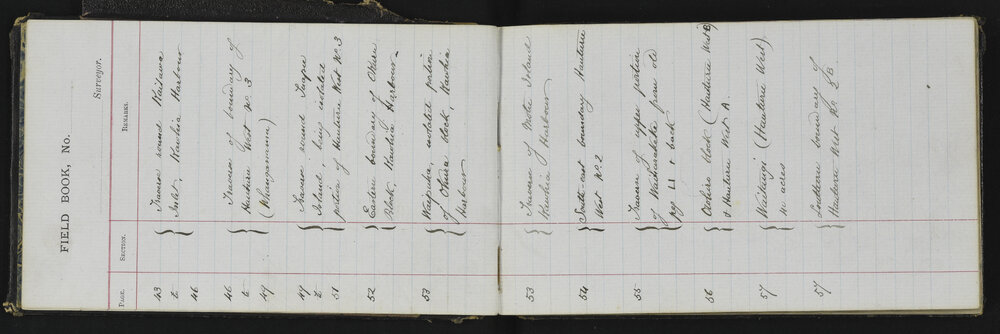 FIELD BOOK, No.
Surveyor.
PAGE. SECTION. REMARKS.
43 to 46 } Traverse round
Inlet, Kawhia Harbour
46 to 49 } Traverse of boundary of
Hauturu West No. 3
49 to 51 } Traverse round
Island being isolated
portion of Hauturu West No. 3
52 } Eastern boundary of
Block, Kawhia Harbour
53 isolated portion
of Block, Kawhia
Harbour
53 Traverse of Motu Island
Kawhia Harbour
54 } South-east boundary Hauturu
West No. 2
55 } Traverse of upper portion
of
page 41 & back
56 } block (Hauturu West B)
& Hauturu West A.
57 } Waitangi (Hauturu West)
acres
57 } Southern boundary of
Hauturu West No. 2B